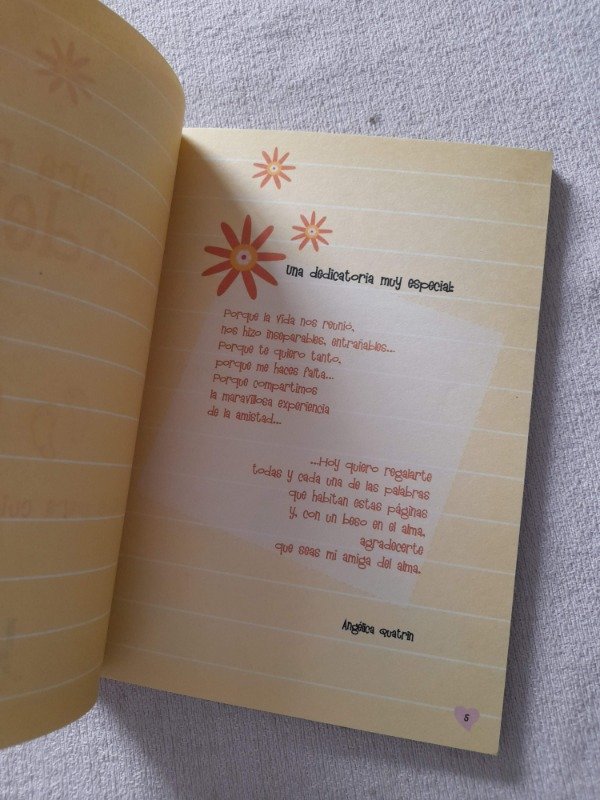 una dedicatoria muy especial:
Porque la vida nos reunió,
nos hizo inseparables, entrañables...
Porque te quiero tanto,
porque me haces falta...
Porque compartimos
la maravillosa experiencia
de la amistad...
...Hoy quiero regalarte
todas y cada una de las palabras
que habitan estas páginas
y, con un beso en el alma,
agradecerte
que seas mi amiga del alma.
Angélica Quatrin
5